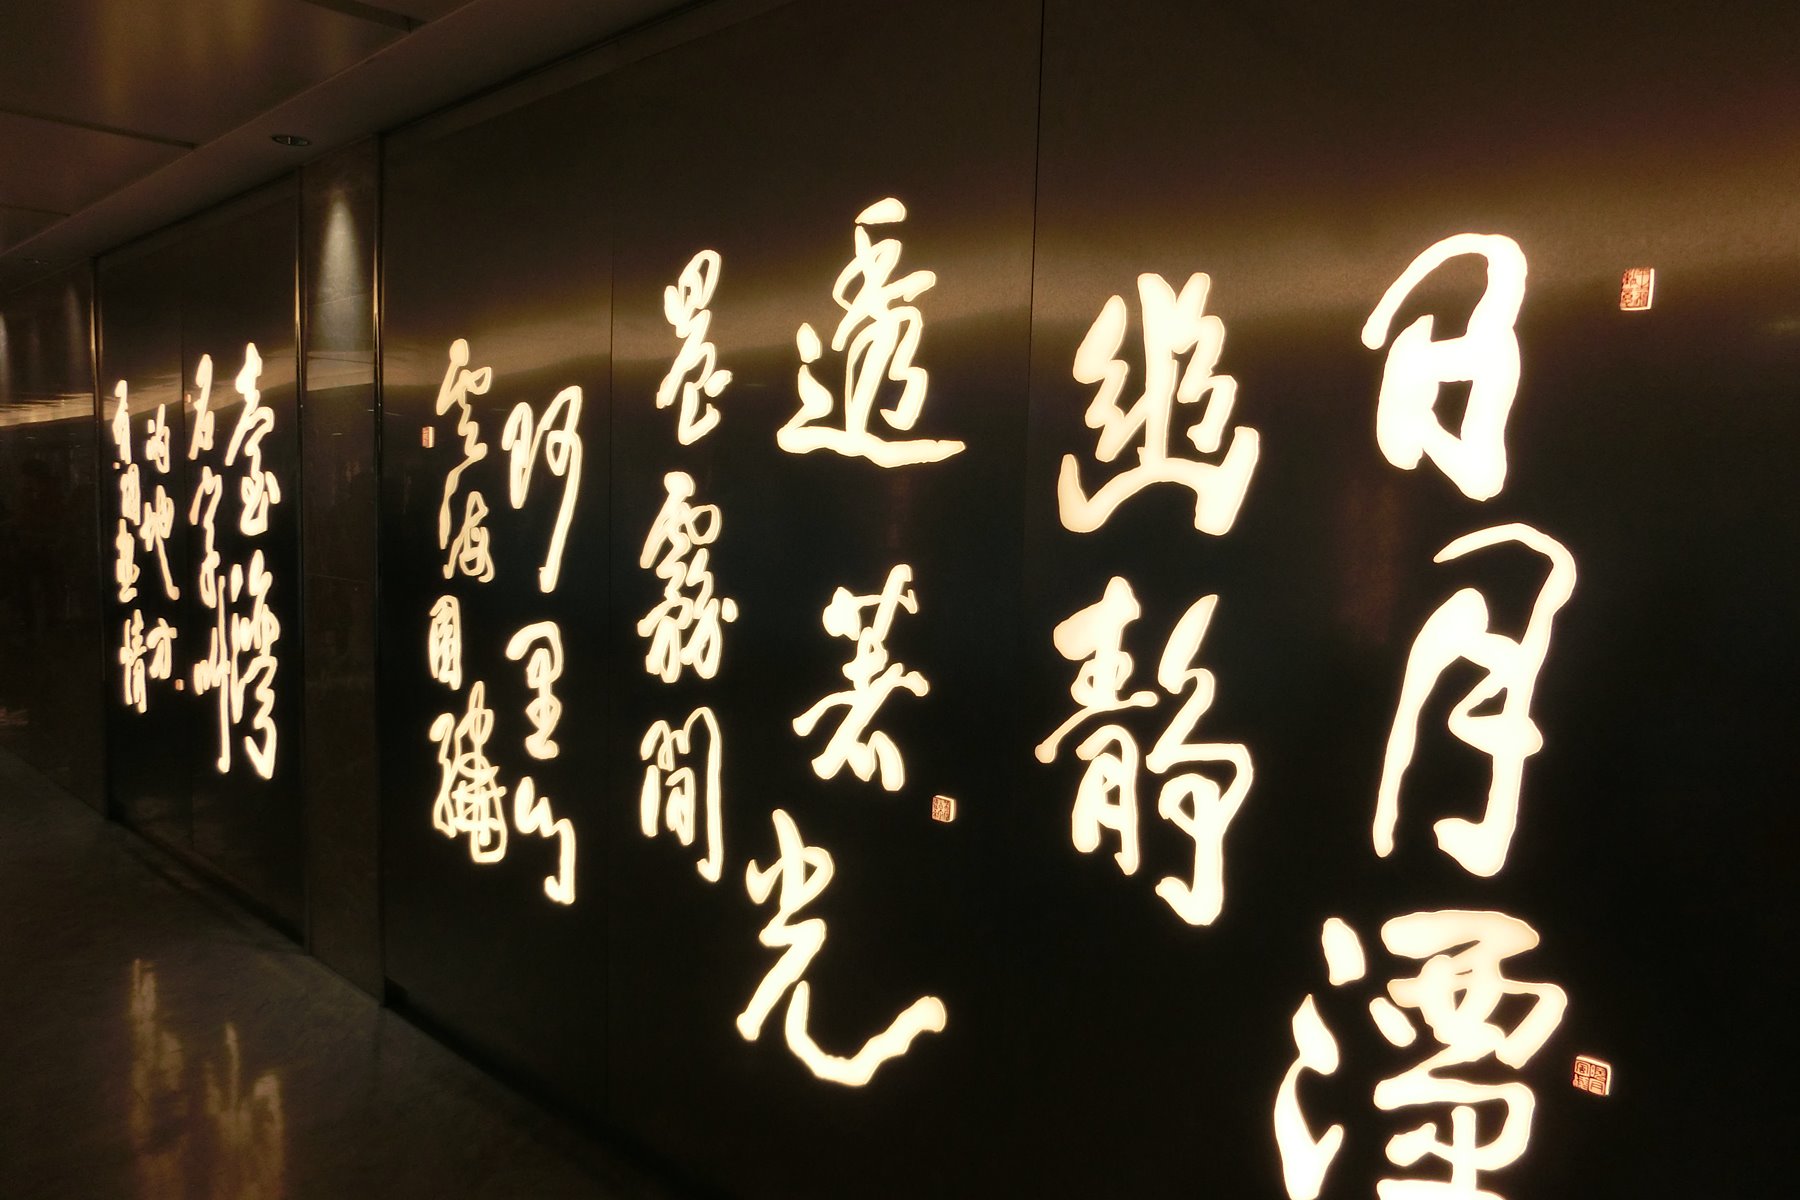 日月潭
幽靜
透著光
晨霧間
阿里山
雲海圍繞
臺灣
名字叫
的地方
有國畫情